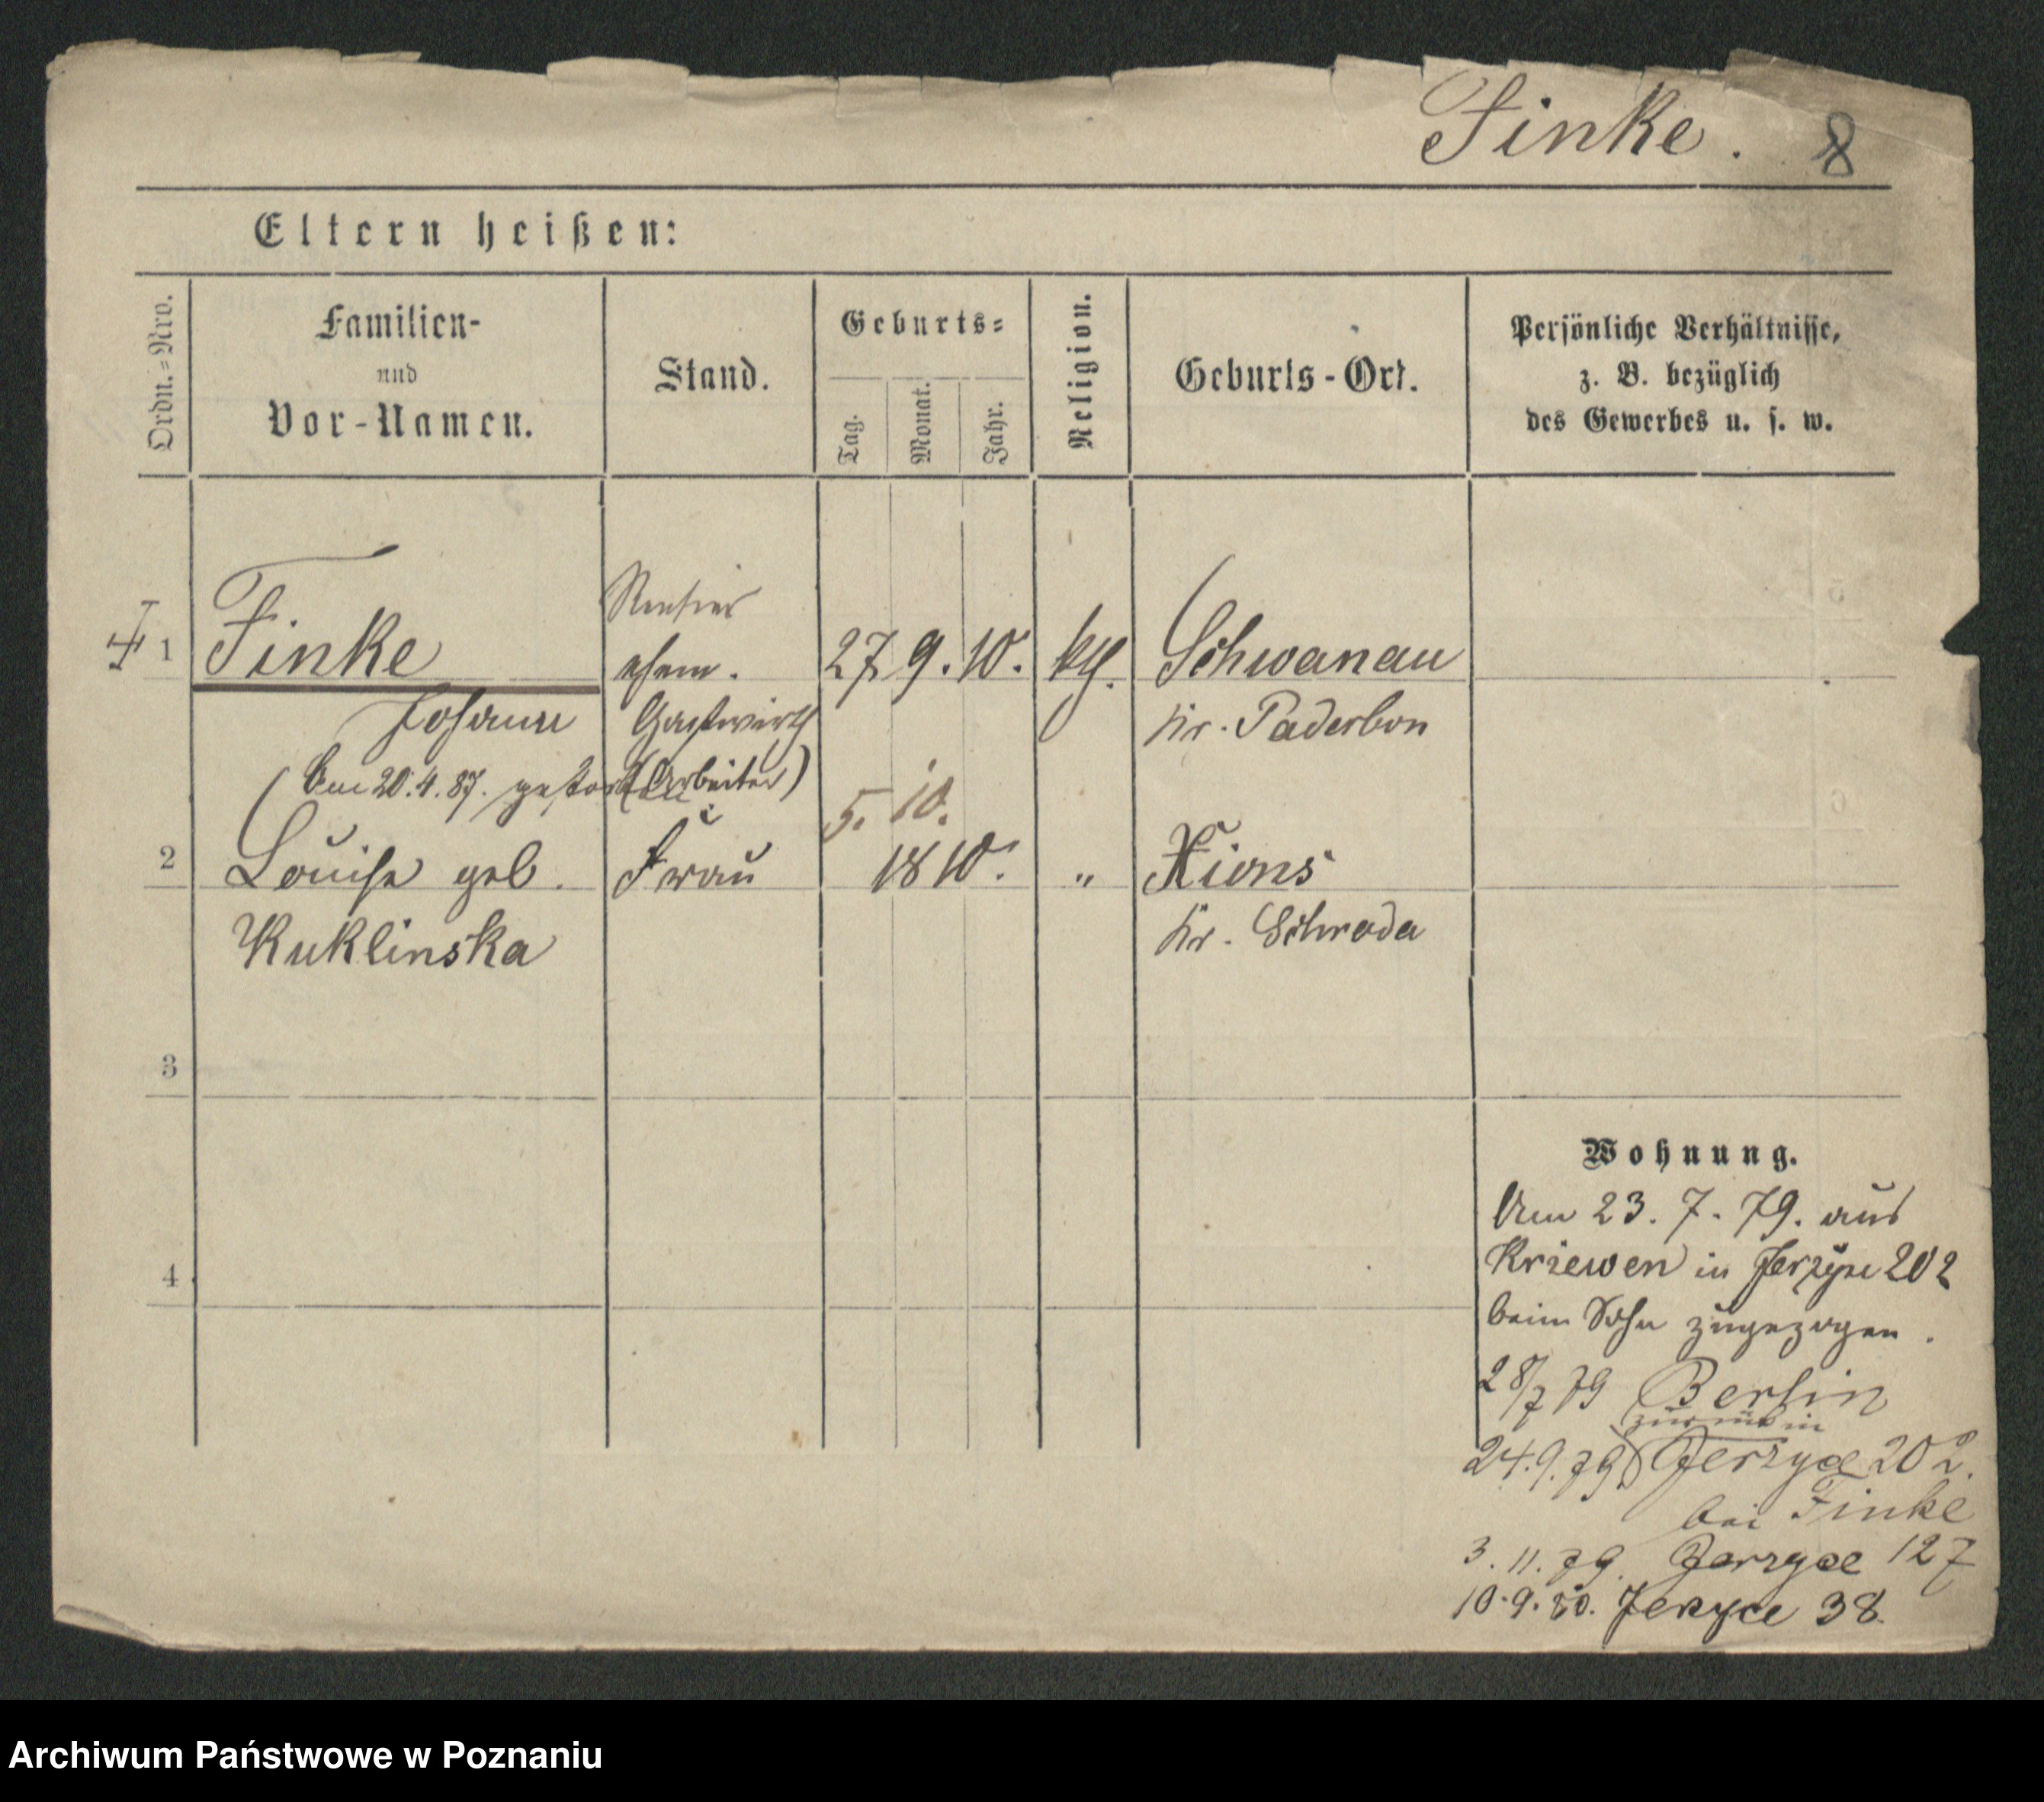 Finke. 8
Eltern heißen:
Ordn.=Nro.
Familien-
und
Vor-Namen.
Stand.
Geburts=
Tag.
Monat.
Jahr.
Religion.
Geburts-Ort.
Persönliche Verhältnisse,
z. B. bezüglich
des Gewerbes u. s. w.
1 Finke
Rentier
ehem. 27. 9. 10. kth. Schwanau
Johann Gastwirth Kr. Paderbon
(Am 20.4.87. gestorben
(Arbeiter)
5. 10.
2 Louise geb. Frau 1810. " Xions
Kuklinska Kr. Schroda
3
4
Wohnung.
Am 23. 7. 79. aus
Kriewen in Jerzyce 202
beim Sohn zugezogen.
28/7 79 Berlin
zurück in
24.9.79 Jerzyce 202.
bei Finke
3. 11. 79. Jerzyce 127
10.9.80. Jerzyce 38.
Archiwum Państwowe w Poznaniu